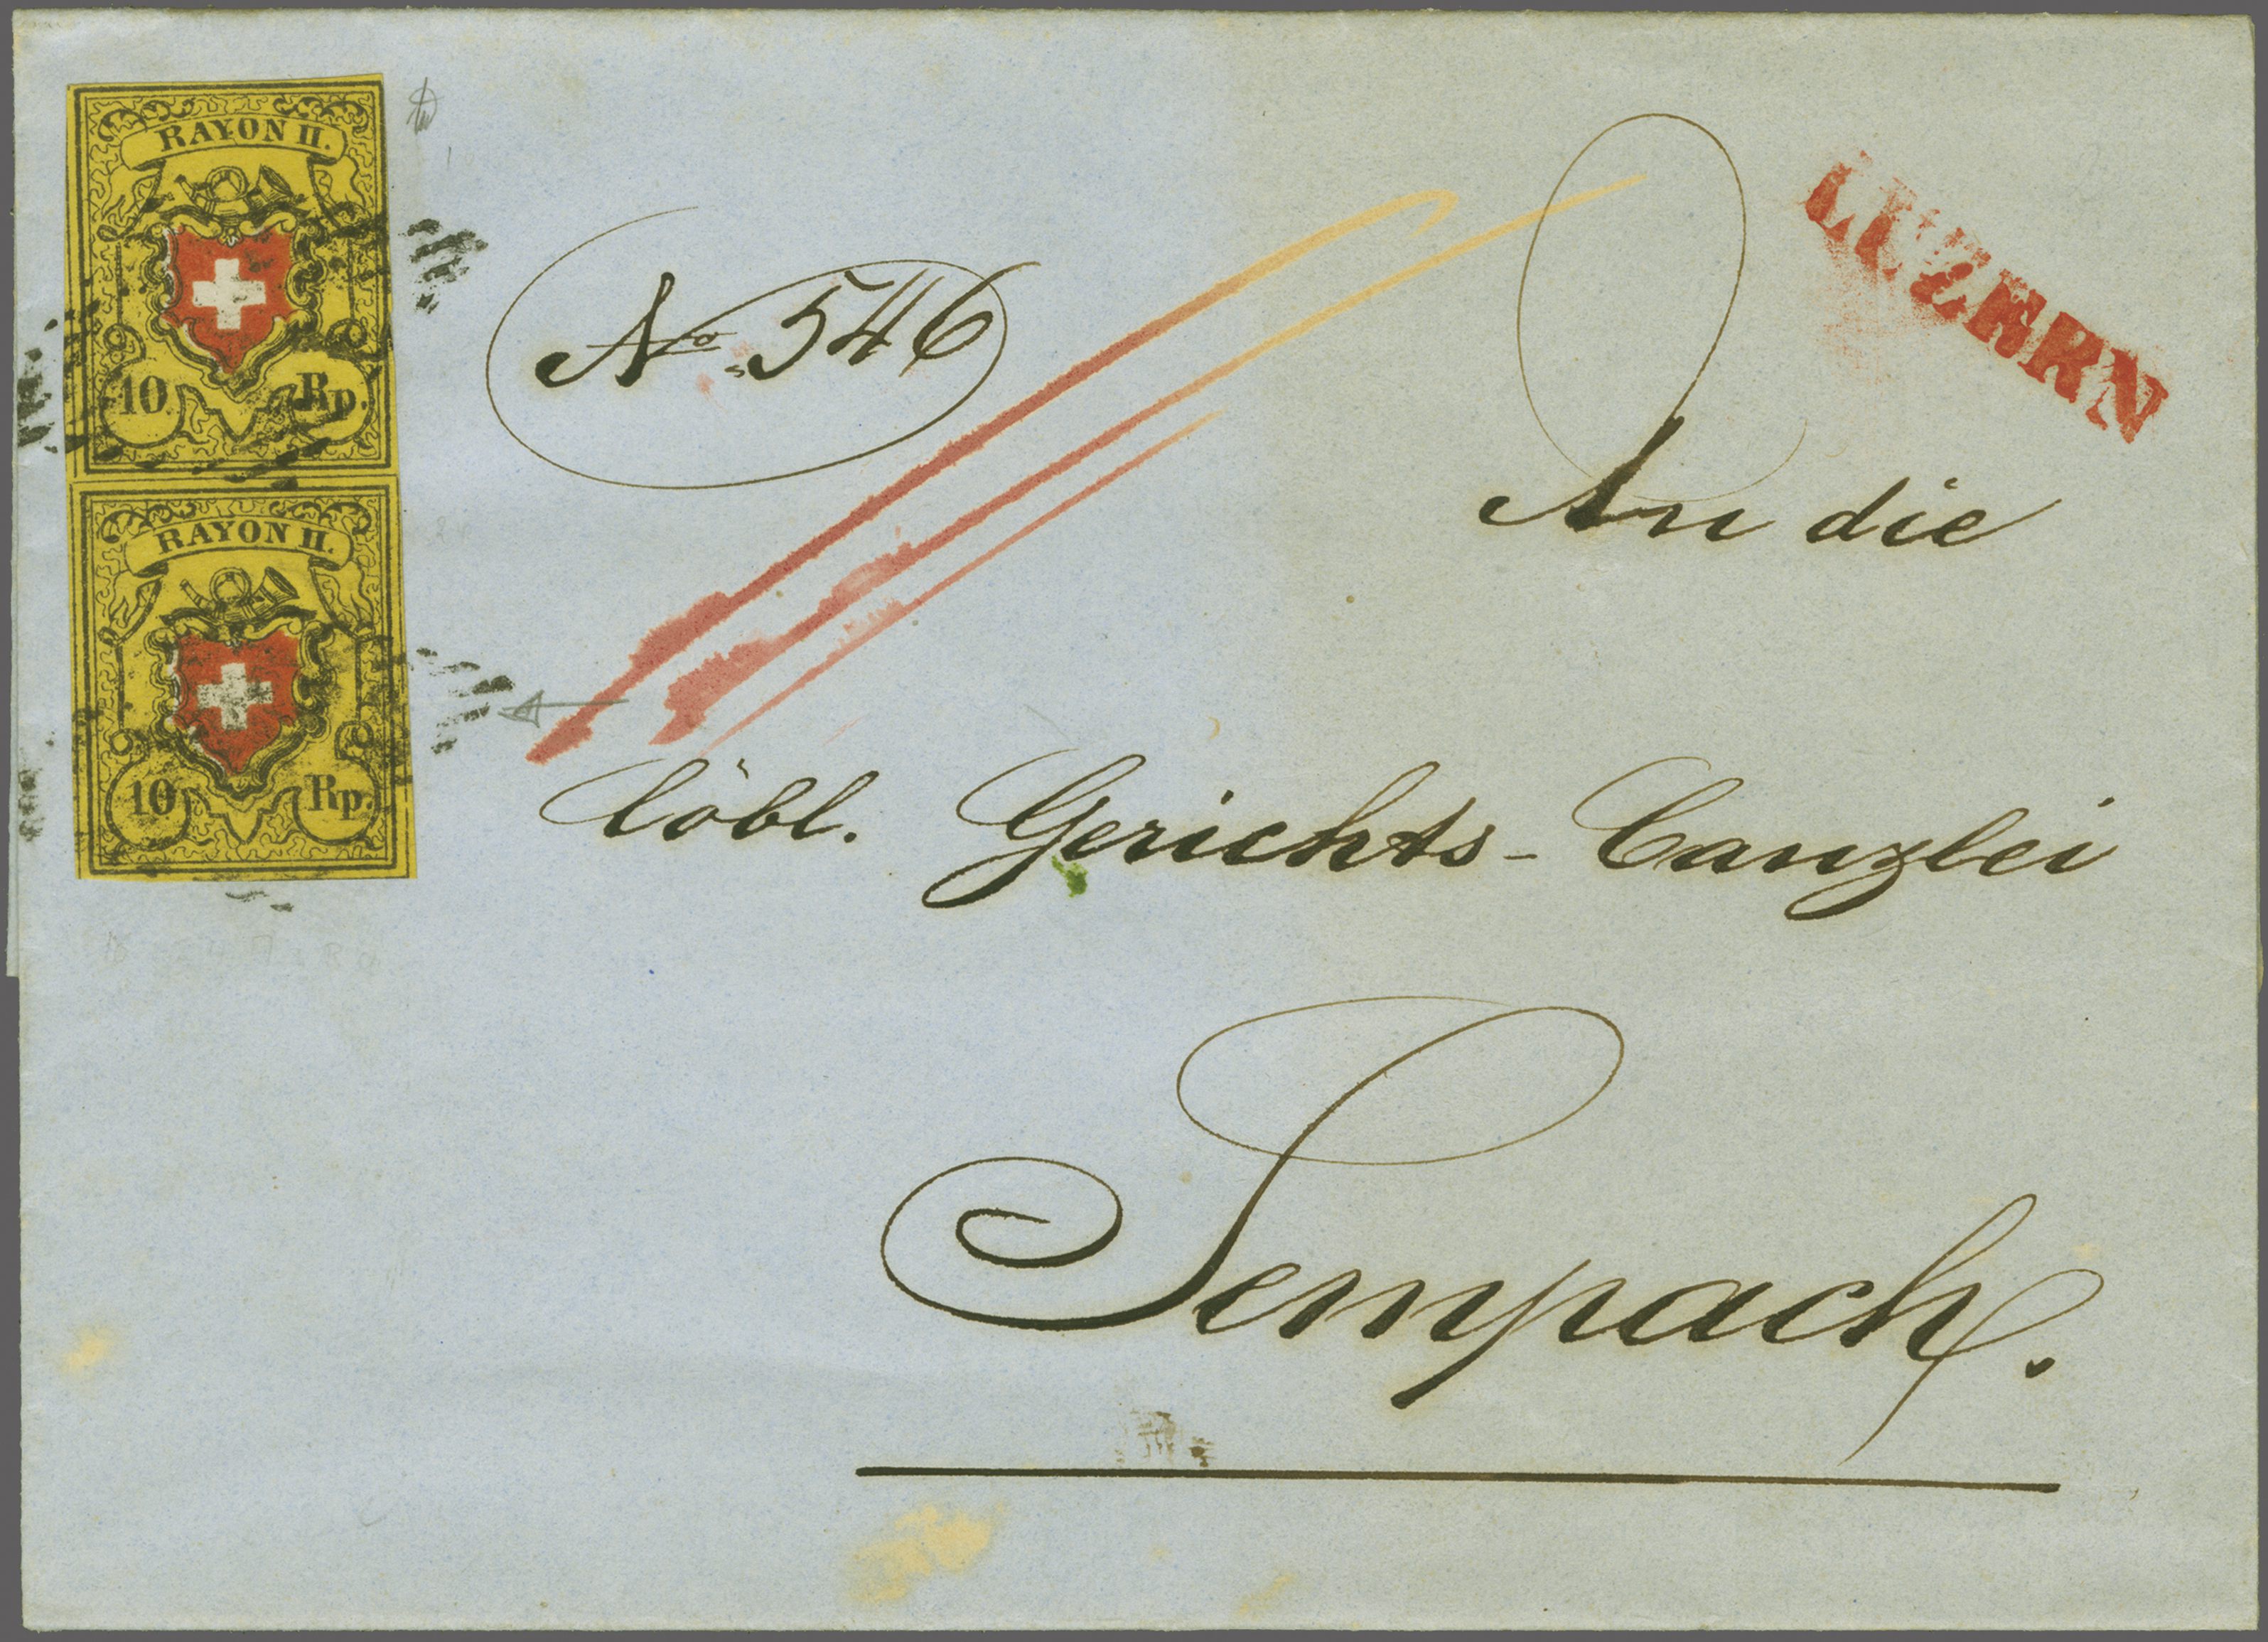 RAYON II.
10 Rp.
RAYON II.
10 Rp.
No. 546
LUZERN
An die
löbl. Gerichts-Canzlei
Sempach.